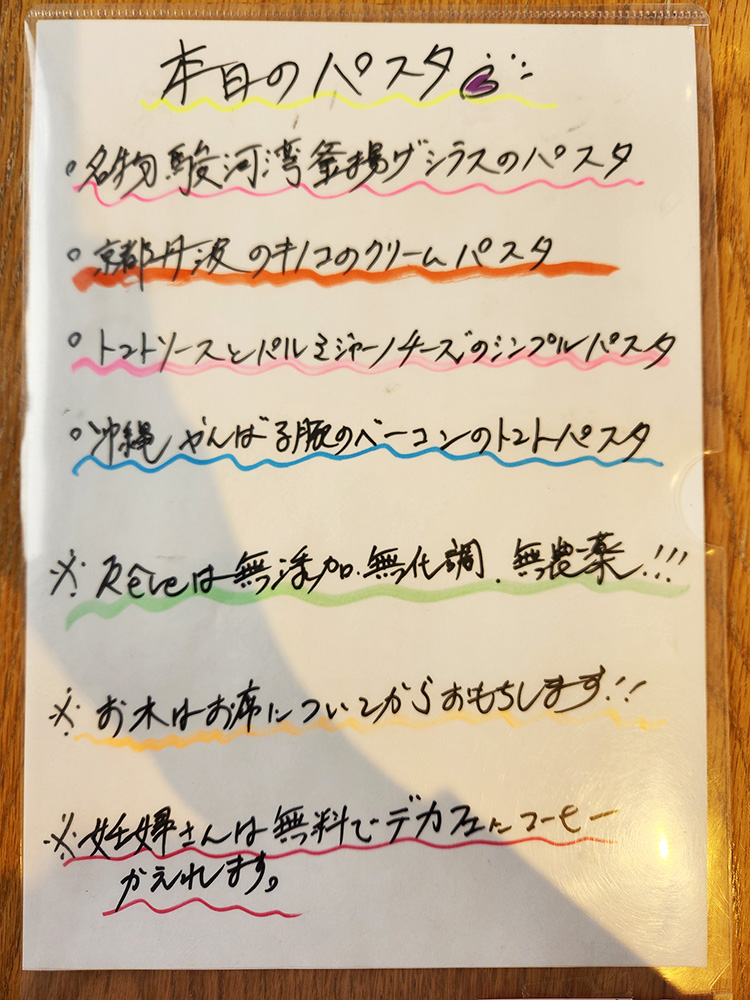 本日のパスタ
名物 駿河湾釜揚げシラスのパスタ
京都丹波のキノコのクリームパスタ
トマトソースとパルミジャーノチーズのシンプルパスタ
沖縄やんばる豚のベーコンのトマトパスタ
※ Reveは無添加.無化調.無農薬!!!
※ お水はお席についてからおもちします!!
※ 妊婦さんは無料でデカフェにコーヒー
かえれます。